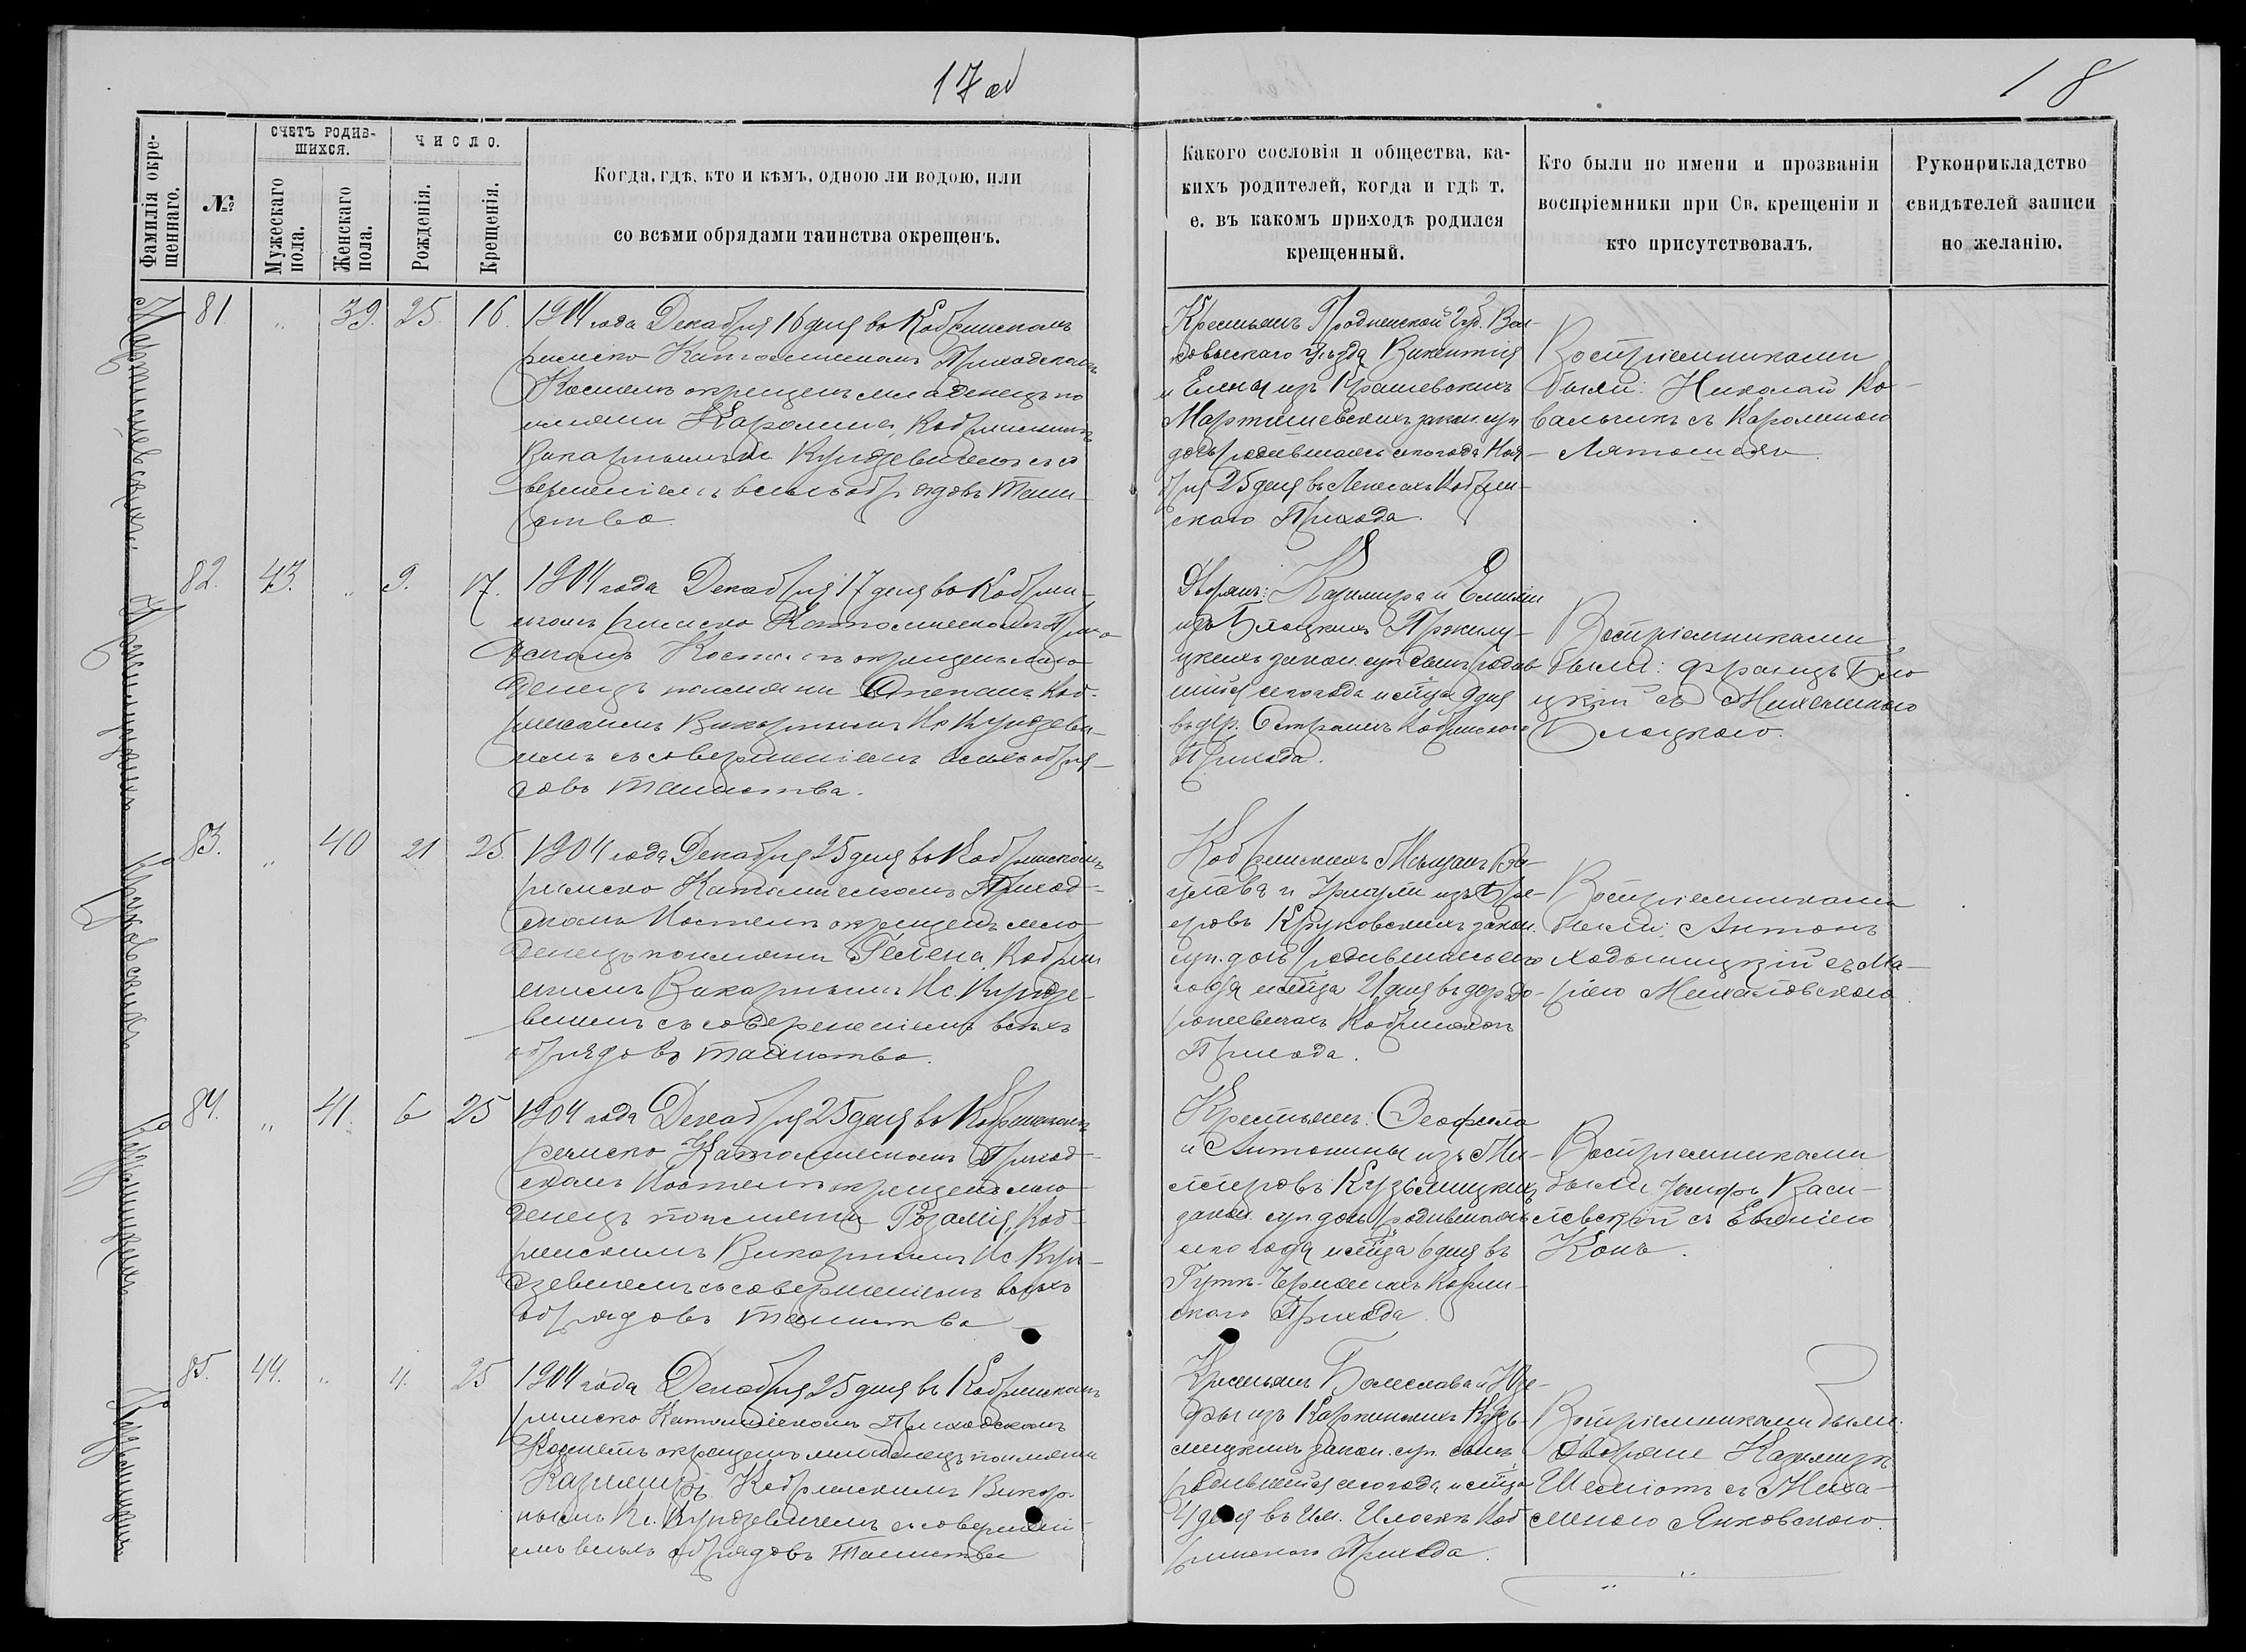 17 об
18
Фамилія окре-
щеннаго.
№
СЧЕТЪ РОДИВ-
ШИХСЯ.
Мужескаго
пола.
Женскаго
пола.
ЧИСЛО.
Рожденія.
Крещенія.
Когда, гдѣ, кто и кѣмъ, одною ли водою, или
со всѣми обрядами таинства окрещенъ.
Какого сословія и общества, ка-
кихъ родителей, когда и гдѣ т.
е. въ какомъ приходѣ родился
крещенный.
Кто были по имени и прозванію
воспріемники при Св. крещеніи и
кто присутствовалъ.
Рукоприкладство
свидѣтелей записи
по желанію.
81 " 39. 25 16.
1904 года Декабря 16 дня во Кобринскомъ
римско Католическомъ Приходскомъ
Костелѣ окрещенъ младенецъ по
имени Каролина, Кобринскимъ
Викарнымъ Кс Кундзевичемъ съ со
вершеніемъ всѣхъ обрядовъ Таин-
ства.
Крестьянъ Гродненской губ. Вол-
ковыскаго уѣзда Викентія
и Елены изъ
закон. суп
дочь родившаяся сего года Ноя-
бря 25 дня въ Кобрин-
скаго Прихода.
Воспріемниками
были: Николай Ко-
вальчикъ съ Каролиною
82. 43. " 9. 17.
1904 года Декабря 17 дня во Кобрин-
скомъ римско Католическомъ Прихо
дскомъ Костелѣ окрещенъ мла
денецъ по имени Степанъ Коб-
ринскимъ Викарнымъ Кс Кундзеви-
чемъ съ совершеніемъ всѣхъ обря-
довъ таинства.
Дворянъ: Казимира и Емиліи
изъ Бялоцкихъ
закон. суп сынъ родив
шійся сего года и мѣсяца 9 дня
въ дер. Кобринскаго
Прихода.
Воспріемниками
были: Францъ Бяло
цкій съ Михалиною
Бялоцкою.
83. " 40 21 25.
1904 года Декабря 25 дня во Кобринскомъ
римско Католическомъ Приход-
скомъ Костелѣ окрещенъ мла
денецъ по имени Гелена Кобрин
скимъ Викарнымъ Кс. Кундзе-
вичемъ съ совершеніемъ всѣхъ
обрядовъ таинства.
Кобринскихъ Мѣщанъ Ва-
цлава и
Круковскихъ закон.
суп. дочь родившаяся сего
года мѣсяца 21 дня въ дер
Кобринскаго
Прихода.
Воспріемниками
были: Антонъ
Ходыницкій съ Ма-
ріею Михаловскою.
84. " 41. 6 25
1904 года Декабря 25 дня во Кобринскомъ
римско Католическомъ Приход-
скомъ Костелѣ окрещенъ мла
денецъ по имени Розалія, Коб-
ринскимъ Викарнымъ Кс Кун-
дзевичемъ съ совершеніемъ всѣхъ
обрядовъ таинства
Крестьянъ: Теофила
и Антонины изъ
Кузьмицкихъ
закон. суп дочь родившаяся
сего года мѣсяца 6 дня въ
Кобрин-
скаго Прихода.
Воспріемниками
были Іосифъ Васи-
левскій съ Евгеніею
85. 44. " 4. 25
1904 года Декабря 25 дня въ Кобринскомъ
римско Католическомъ Приходскомъ
Костелѣ окрещенъ младенецъ по имени
Казимиръ. Кобринскимъ Викар-
нымъ Кс. Кундзевичемъ съ совершені-
емъ всѣхъ обрядовъ Таинства
Крестьянъ Болеслава и Юзе-
фы изъ Кузь-
мицкихъ закон. суп. сынъ,
родившійся сего года мѣсяца
4 дня въ им. Илоскѣ Коб
ринскаго Прихода.
Воспріемниками были:
дворяне Казимиръ
съ Миха-
линою Янковскою.